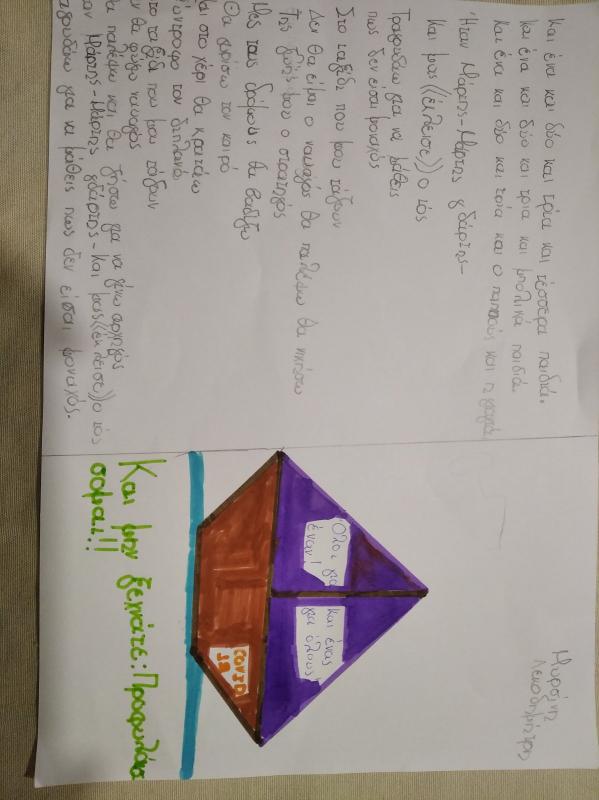 Και ένα και δύο και τρία και τέσσερα παιδιά.
και ένα και δύο και τρία και μπόλικα παιδιά.
και ένα και δύο και τρία και ο παππούς και η γιαγιά
Ήταν Μάρτης-Μάρτης γδάρτης-
και μας ((έκλεισε)) ο ιός
Τραγουδάω για να μάθεις
πως δεν είσαι μοναχός
Στο ταξίδι που μου τάξαν
Δεν θα είμαι ο ναυαγός θα παλέψω θα νικήσω
της ζωής μου ο στρατηγός
Μες τους δρόμους θα βαδίζω
Θα γυρίσω τον καιρό
και στο χέρι θα κρατάω
σύντροφο τον διπλανό.
στο ταξίδι που μου τάξαν
δεν θα φύγω ναυαγός
θα παλέψω και θα ζήσω για να γίνω αρχηγός
ταν Μάρτης-Μάρτης γδάρτης-και μας ((έκλεισε)) ο ιός
αγουδάω για να μάθεις πως δεν είσαι μοναχός.
Μυρσίνη
Όλοι για
έναν!
και ένας
για όλους
COVID
19
Και μην ξεχνάτε: Προφυλάσ
σομαι!!